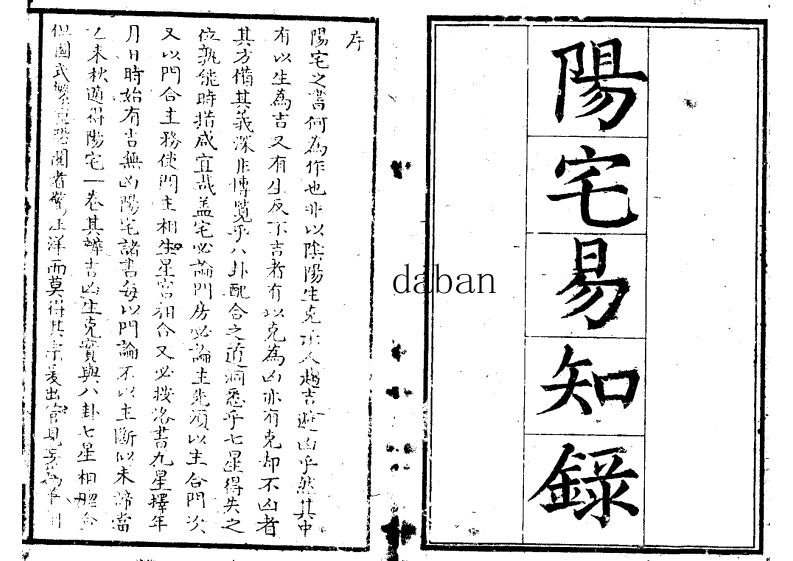 陽宅易知錄
daban
序
陽宅之書何為作也非以陰陽生克示人趨吉避凶乎然其中
有以生為吉又有生反不吉者有以克為凶亦有克却不凶者
其方備其義深非博覽乎八卦配合之道洞悉乎七星得失之
位孰能時措咸宜哉盖宅必論門房必論主先須以主合門次
又以門合主務使門主相生星宮相合又必按洛書九星擇年
月日時始有吉無凶陽宅諸書每以門論不以主斷似未諦當
乙未秋適得陽宅一卷其辨吉凶生克實與八卦七星相合
但圖式繁冗恐閱者驚汪洋而莫得其宗爰出管見